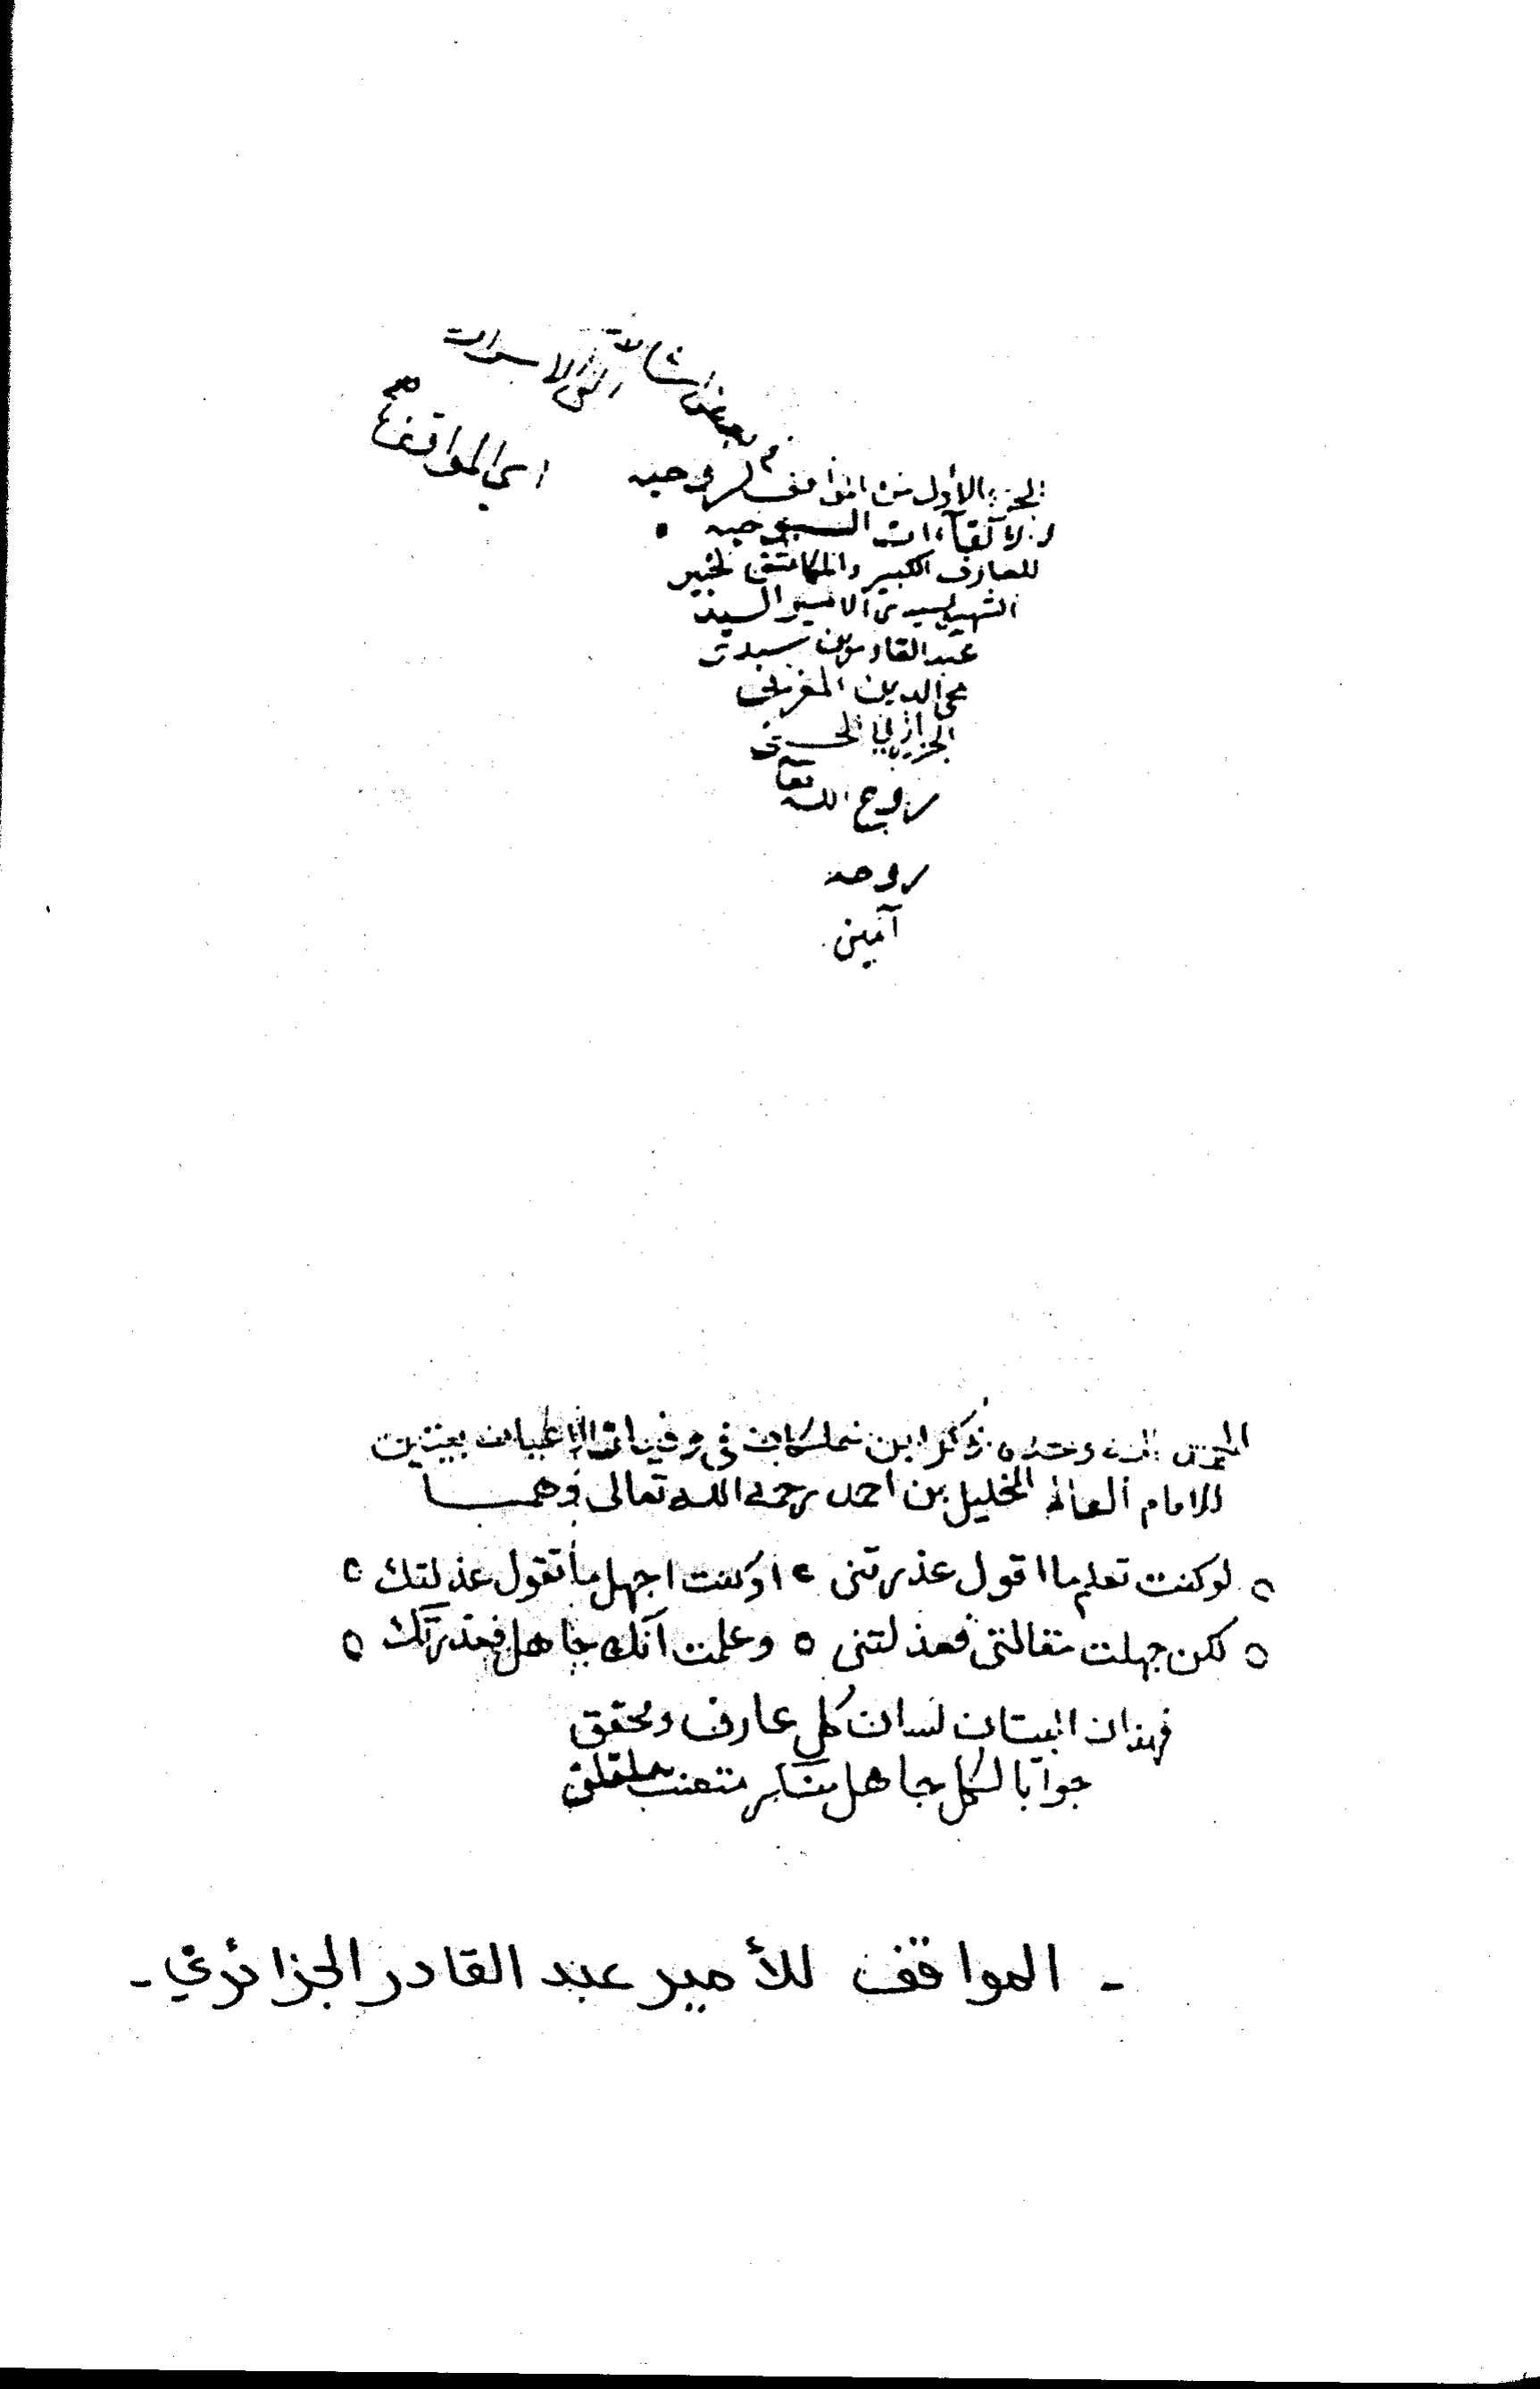 اي المواقف
الجزء الأول من المواقف الروحيه
والالقاآت السبوحيه
للعارف الكبير والمكاشف الخبير
الشهير سيدى الامير السيد
عبد القادر بن سيدى
محي الدين المغربى
الجزايري الحسنى
روح الله تعا
روحه
آمين
الحمد لله وحده ذكر ابن خلكان فى وفيات الاعيان بيتين
للامام العالم الخليل بن احمد رحمه الله تعالى وهمـــا
لو كنت تعلم ما اقول عذرتنى ٥ او كنت اجهل ما تقول عذلتك ٥
لكن جهلت مقالتى فعذلتنى ٥ وعلمت انك جاهل فعذرتك ٥
فهذان البيتان لسان كل عارف ومحقق
جوابا لكل جاهل منكر متعنت
- المواقف للأمير عبد القادر الجزائري -